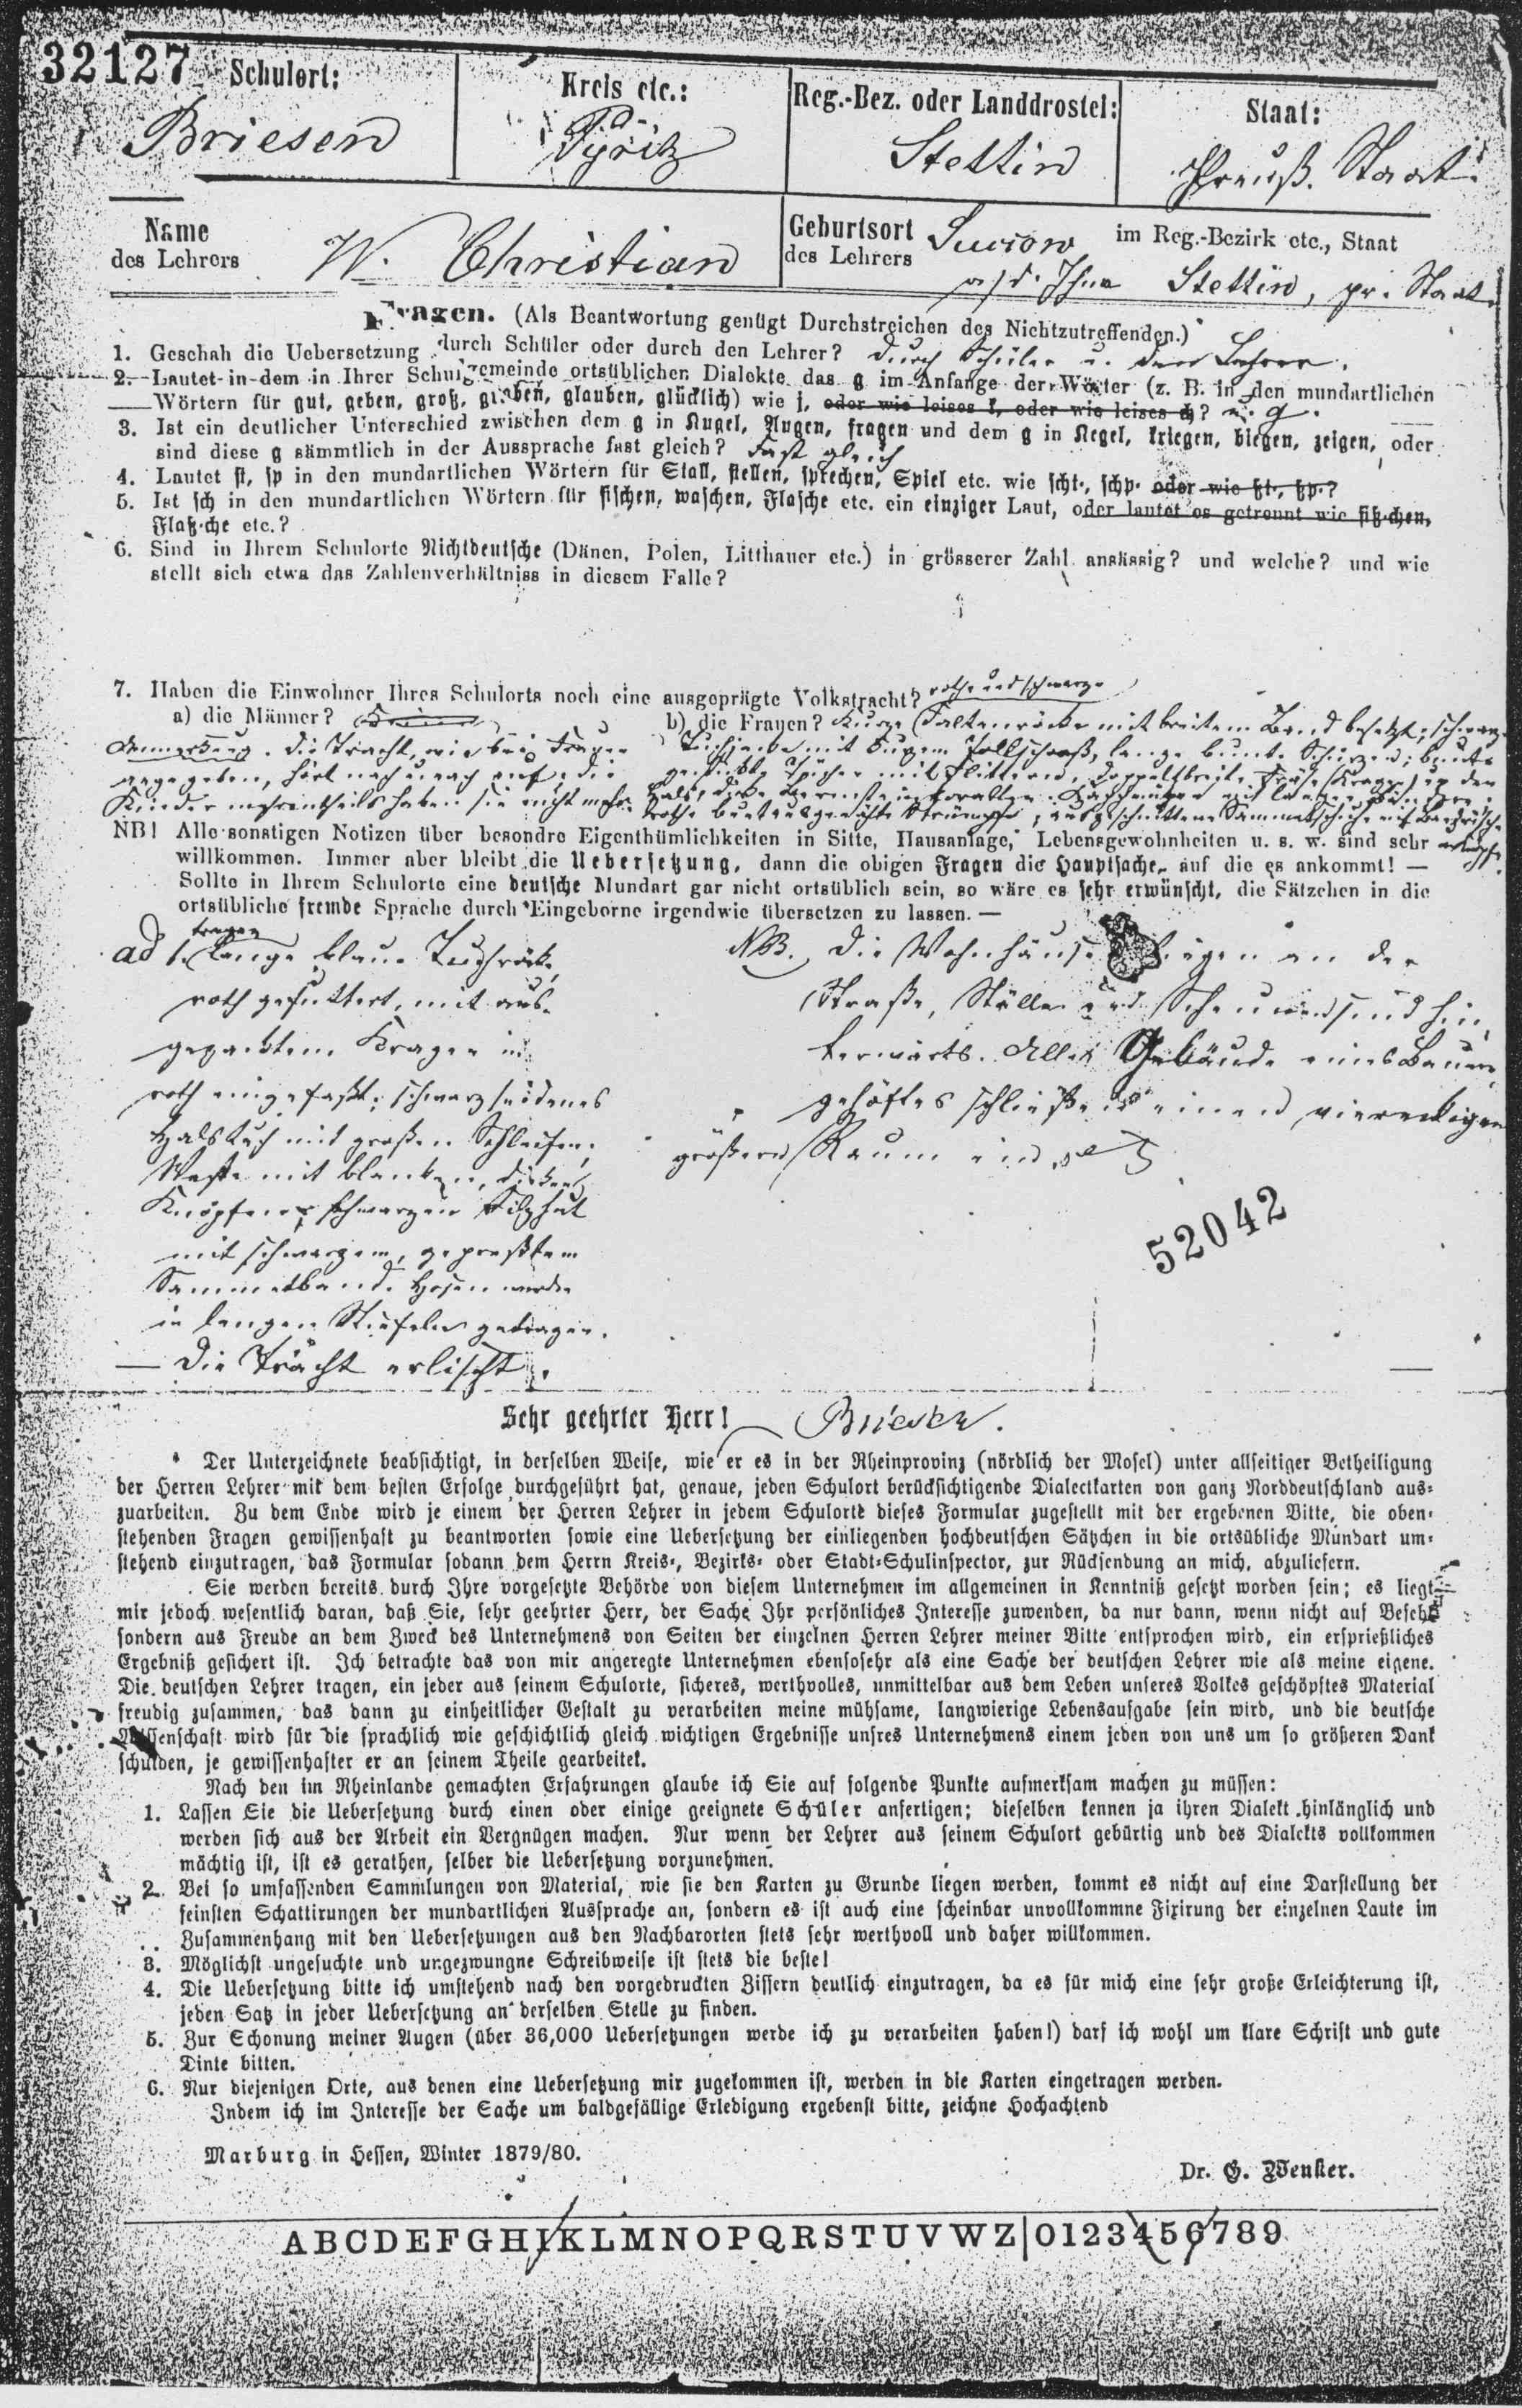 32127 Schulort:
Kreis etc.:
Reg.-Bez. oder Landdrostei:
Staat:
Briesen
Pyritz
Stettin
Preuß. Staat.
Name
des Lehrers
W. Christian
Geburtsort
des Lehrers
Succow
a/d. Ihna
im Reg.-Bezirk etc., Staat
Stettin, pr. Staat.
Fragen. (Als Beantwortung genügt Durchstreichen des Nichtzutreffenden.)
1. Geschah die Uebersetzung durch Schüler oder durch den Lehrer? Durch Schüler u. den Lehrer.
2. Lautet in dem in Ihrer Schulgemeinde ortsüblichen Dialekte das g im Anfange der Wörter (z. B. in den mundartlichen
Wörtern für gut, geben, groß, graben, glauben, glücklich) wie j, oder wie leises k, oder wie leises ch? u. g.
3. Ist ein deutlicher Unterschied zwischen dem g in Kugel, Augen, fragen und dem g in Kegel, kriegen, biegen, zeigen, oder
sind diese g sämmtlich in der Aussprache fast gleich? Fast gleich
4. Lautet st, sp in den mundartlichen Wörtern für Stall, stellen, sprechen, Spiel etc. wie scht., schp. oder wie ßt., ßp.?
5. Ist sch in den mundartlichen Wörtern für fischen, waschen, Flasche etc. ein einziger Laut, oder lautet es getrennt wie fiß-chen,
Flaß-che etc.?
6. Sind in Ihrem Schulorte Nichtdeutsche (Dänen, Polen, Litthauer etc.) in grösserer Zahl ansässig? und welche? und wie
stellt sich etwa das Zahlenverhältniss in diesem Falle?
7. Haben die Einwohner Ihres Schulorts noch eine ausgeprägte Volkstracht? rothe und schwarze
a) die Männer?
b) die Frauen? Kurze Faltenröcke mit breitem Band besetzt; schwarze
Anmerkung. Die Tracht, wie bei Frauen
Tuchjacke mit kurzem Vollschooß, lange bunte Schürzen; bunte
angegeben, hört nach u. nach auf, die
gestickte Tücher mit Flittern, doppeltbreite Kragen um den
Kinder mehrentheils haben sie nicht mehr.
Hals, dicke Bernsteinkorallen.
rothe buntausgenähte Strümpfe, ausgeschnittene Sammetschuhe
NB! Alle sonstigen Notizen über besondre Eigenthümlichkeiten in Sitte, Hausanlage, Lebensgewohnheiten u. s. w. sind sehr
willkommen. Immer aber bleibt die Uebersetzung, dann die obigen Fragen die Hauptsache, auf die es ankommt! —
Sollte in Ihrem Schulorte eine deutsche Mundart gar nicht ortsüblich sein, so wäre es sehr erwünscht, die Sätzchen in die
ortsübliche fremde Sprache durch Eingeborne irgendwie übersetzen zu lassen. —
tragen
ad 1. Lange blaue Tuchröcke,
roth gefuttert, mit aus-
gezacktem Kragen u.
roth eingefaßt; schwarzseidenes
Halstuch mit großen Schleifen;
Weste mit blanken, dicken
Knöpfen; schwarzen Filzhut
mit schwarzem, gepreßtem
Sammetband. Hosen werden
in langen Stiefeln getragen.
— Die Tracht erlischt.
NB. Die Wohnhäuser liegen an der
Straße, Ställe und Scheunen sind hin-
terwärts. Alle Gebäude eines Bauern-
gehöftes schließen einen viereckigen
größern Raum ein.
52042
Sehr geehrter Herr! Briesen.
Der Unterzeichnete beabsichtigt, in derselben Weise, wie er es in der Rheinprovinz (nördlich der Mosel) unter allseitiger Betheiligung
der Herren Lehrer mit dem besten Erfolge durchgeführt hat, genaue, jeden Schulort berücksichtigende Dialectkarten von ganz Norddeutschland aus-
zuarbeiten. Zu dem Ende wird je einem der Herren Lehrer in jedem Schulorte dieses Formular zugestellt mit der ergebenen Bitte, die oben-
stehenden Fragen gewissenhaft zu beantworten sowie eine Uebersetzung der einliegenden hochdeutschen Sätzchen in die ortsübliche Mundart um-
stehend einzutragen, das Formular sodann dem Herrn Kreis-, Bezirks- oder Stadt-Schulinspector, zur Rücksendung an mich, abzuliefern.
Sie werden bereits durch Ihre vorgesetzte Behörde von diesem Unternehmen im allgemeinen in Kenntniß gesetzt worden sein; es liegt
mir jedoch wesentlich daran, daß Sie, sehr geehrter Herr, der Sache Ihr persönliches Interesse zuwenden, da nur dann, wenn nicht auf Befehl
sondern aus Freude an dem Zweck des Unternehmens von Seiten der einzelnen Herren Lehrer meiner Bitte entsprochen wird, ein ersprießliches
Ergebniß gesichert ist. Ich betrachte das von mir angeregte Unternehmen ebensosehr als eine Sache der deutschen Lehrer wie als meine eigene.
Die deutschen Lehrer tragen, ein jeder aus seinem Schulorte, sicheres, werthvolles, unmittelbar aus dem Leben unseres Volkes geschöpftes Material
freudig zusammen, das dann zu einheitlicher Gestalt zu verarbeiten meine mühsame, langwierige Lebensaufgabe sein wird, und die deutsche
Wissenschaft wird für die sprachlich wie geschichtlich gleich wichtigen Ergebnisse unsres Unternehmens einem jeden von uns um so größeren Dank
schulden, je gewissenhafter er an seinem Theile gearbeitet.
Nach den im Rheinlande gemachten Erfahrungen glaube ich Sie auf folgende Punkte aufmerksam machen zu müssen:
1. Lassen Sie die Uebersetzung durch einen oder einige geeignete Schüler anfertigen; dieselben kennen ja ihren Dialekt hinlänglich und
werden sich aus der Arbeit ein Vergnügen machen. Nur wenn der Lehrer aus seinem Schulort gebürtig und des Dialekts vollkommen
mächtig ist, ist es gerathen, selber die Uebersetzung vorzunehmen.
2. Bei so umfassenden Sammlungen von Material, wie sie den Karten zu Grunde liegen werden, kommt es nicht auf eine Darstellung der
feinsten Schattirungen der mundartlichen Aussprache an, sondern es ist auch eine scheinbar unvollkommne Fixirung der einzelnen Laute im
Zusammenhang mit den Uebersetzungen aus den Nachbarorten stets sehr werthvoll und daher willkommen.
3. Möglichst ungesuchte und ungezwungne Schreibweise ist stets die beste!
4. Die Uebersetzung bitte ich umstehend nach den vorgedruckten Ziffern deutlich einzutragen, da es für mich eine sehr große Erleichterung ist,
jeden Satz in jeder Uebersetzung an derselben Stelle zu finden.
5. Zur Schonung meiner Augen (über 36,000 Uebersetzungen werde ich zu verarbeiten haben!) darf ich wohl um klare Schrift und gute
Dinte bitten.
6. Nur diejenigen Orte, aus denen eine Uebersetzung mir zugekommen ist, werden in die Karten eingetragen werden.
Indem ich im Interesse der Sache um baldgefällige Erledigung ergebenst bitte, zeichne Hochachtend
Marburg in Hessen, Winter 1879/80.
Dr. G. Wenker.
ABCDEFGHIKLMNOPQRSTUVWZ|0123456789